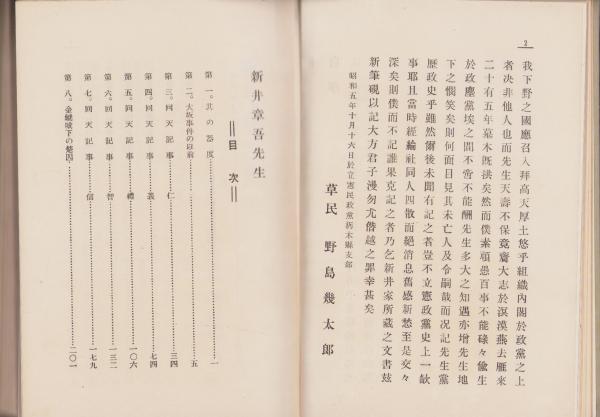 2
我下野之國應召入拜高天厚土悠乎組織內閣於政黨之上
者決非他人也而先生天壽不保竟齎大志於溟漠燕去雁來
二十有五年墓木既拱矣然而僕素頑愚百事不能碌々偸生
於政塵黨埃之間不啻不能酬先生多大之知遇亦增先生地
下之憫笑矣則何面目見其未亡人及令嗣哉而況記先生黨
歷政史乎雖然爾後未聞有記之者豈不立憲政黨史上一缺
事耶且當時經綸社同人四散而絕消息舊感新愁至是交々
深矣則僕而不記誰果克記之者乃乞新井家所藏之文書玆
新筆硯以記大方君子漫勿尤僭越之罪幸甚矣
昭和五年十月十六日於立憲民政黨栃木縣支部
草民 野島幾太郎
新井章吾先生
目次
第一。其の器度 一
第二。大坂事件の以前 五
第三。回天記事 仁 三四
第四。回天記事 義 七四
第五。回天記事 禮 一〇六
第六。回天記事 智 一三二
第七。回天記事 信 一七九
第八。金城下の楚囚 二〇一